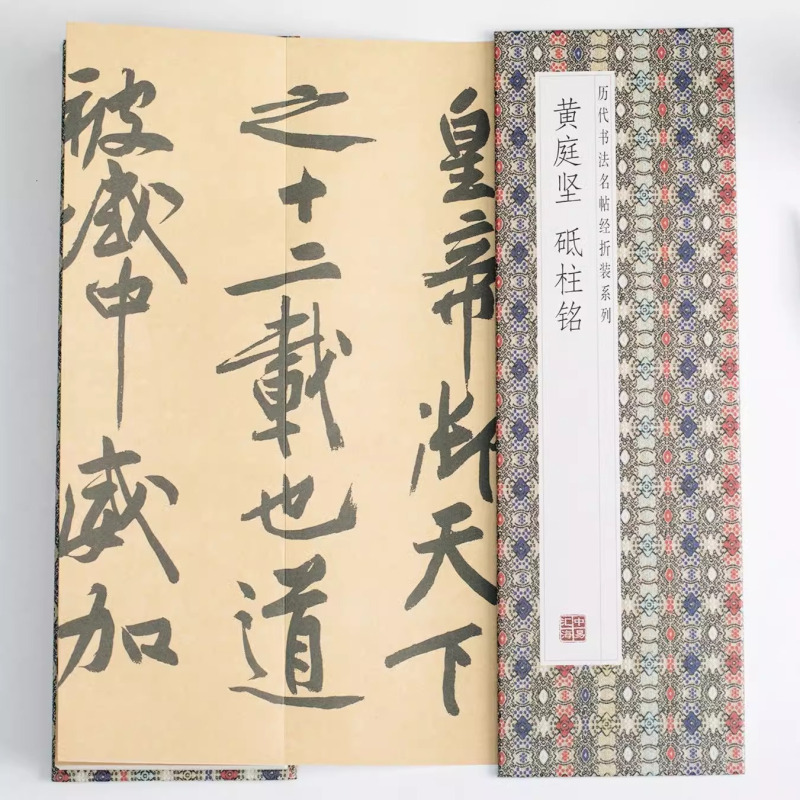 历代书法名帖经折装系列
黄庭坚 砥柱铭
中易
汇海
皇帝御天下
之十二載也道
被域中威加